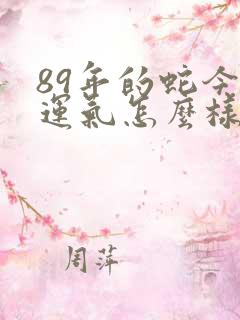 89年的蛇今
運氣怎麼樣
周萍